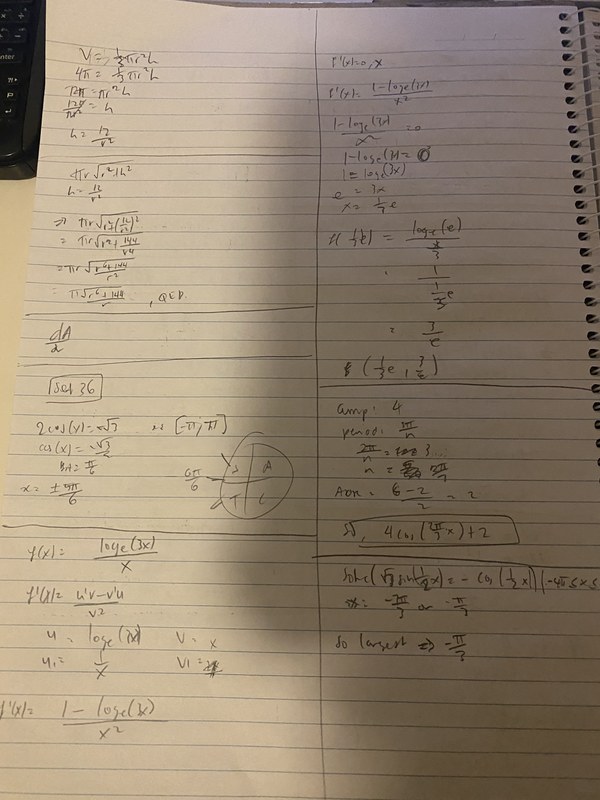 V = 1/3 πr²h
4π = 1/3 πr²h
12π = πr²h
12π/πr² = h
h = 12/r²
πr√(r²+h²)
h = 12/r²
=> πr√(r²+(12/r²)²)
= πr√(r²+144/r⁴)
= πr√(r⁶+144)/r²
= π√(r⁶+144)/r , QED.
dA/d
Sect 36
2cos(x) = -√3 [-π, π]
cos(x) = -√3/2
BA = π/6
x = ±5π/6
S A
T C
f(x) = loge(3x)/x
f'(x) = u'v - v'u/v²
u = loge(3x) V = x
u1 = 1/x V1 =
f'(x) = 1 - loge(3x)/x²
f'(x)=0, x
f'(x) = 1-loge(3x)/x²
1-loge(3x)/x² = 0
1-loge(3x) = 0
1 = loge(3x)
e = 3x
x = 1/3 e
f(1/3 e) = loge(e)/
1/(1/3 e)
= 3/e
(1/3 e, 3/e)
amp: 4
period: 2π/n
2π/n = 3
n = 2π/3
= 6-2/2 = 2
so, 4cos(2π/3 x)+2
solve(√3 sin(1/2 x) = -cos(1/2 x)) |-4π≤x≤
x = -7π/3 or -π/3
so largest => -π/3